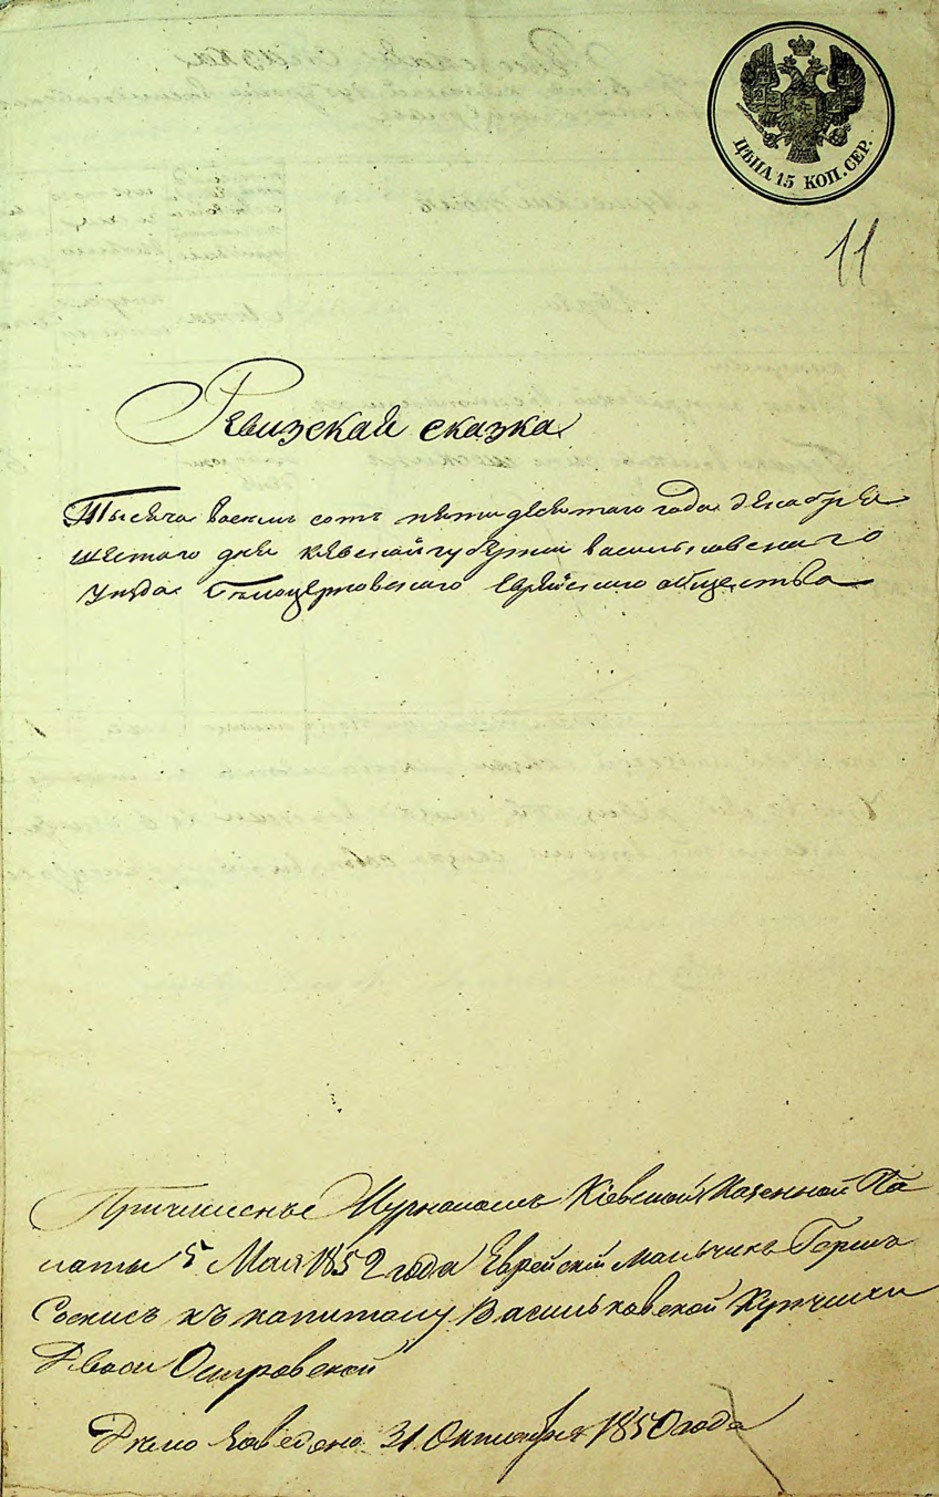 ЦѢНА 15 КОП. СЕР.
11
Ревизская сказка
Тысяча восемь сотъ пятидесятаго года декабря
шестаго дня Кіевской губерніи васильковскаго
уезда Белоцерковскаго Еврейскаго общества
Причисленъ Журналомъ Кіевской Казенной Па
латы 5 Мая 1852 года Еврейскій мальчикъ Гершъ
къ капиталу Васильковской Купчихи
Островской
Дело заведено 31 Октября 1850 года